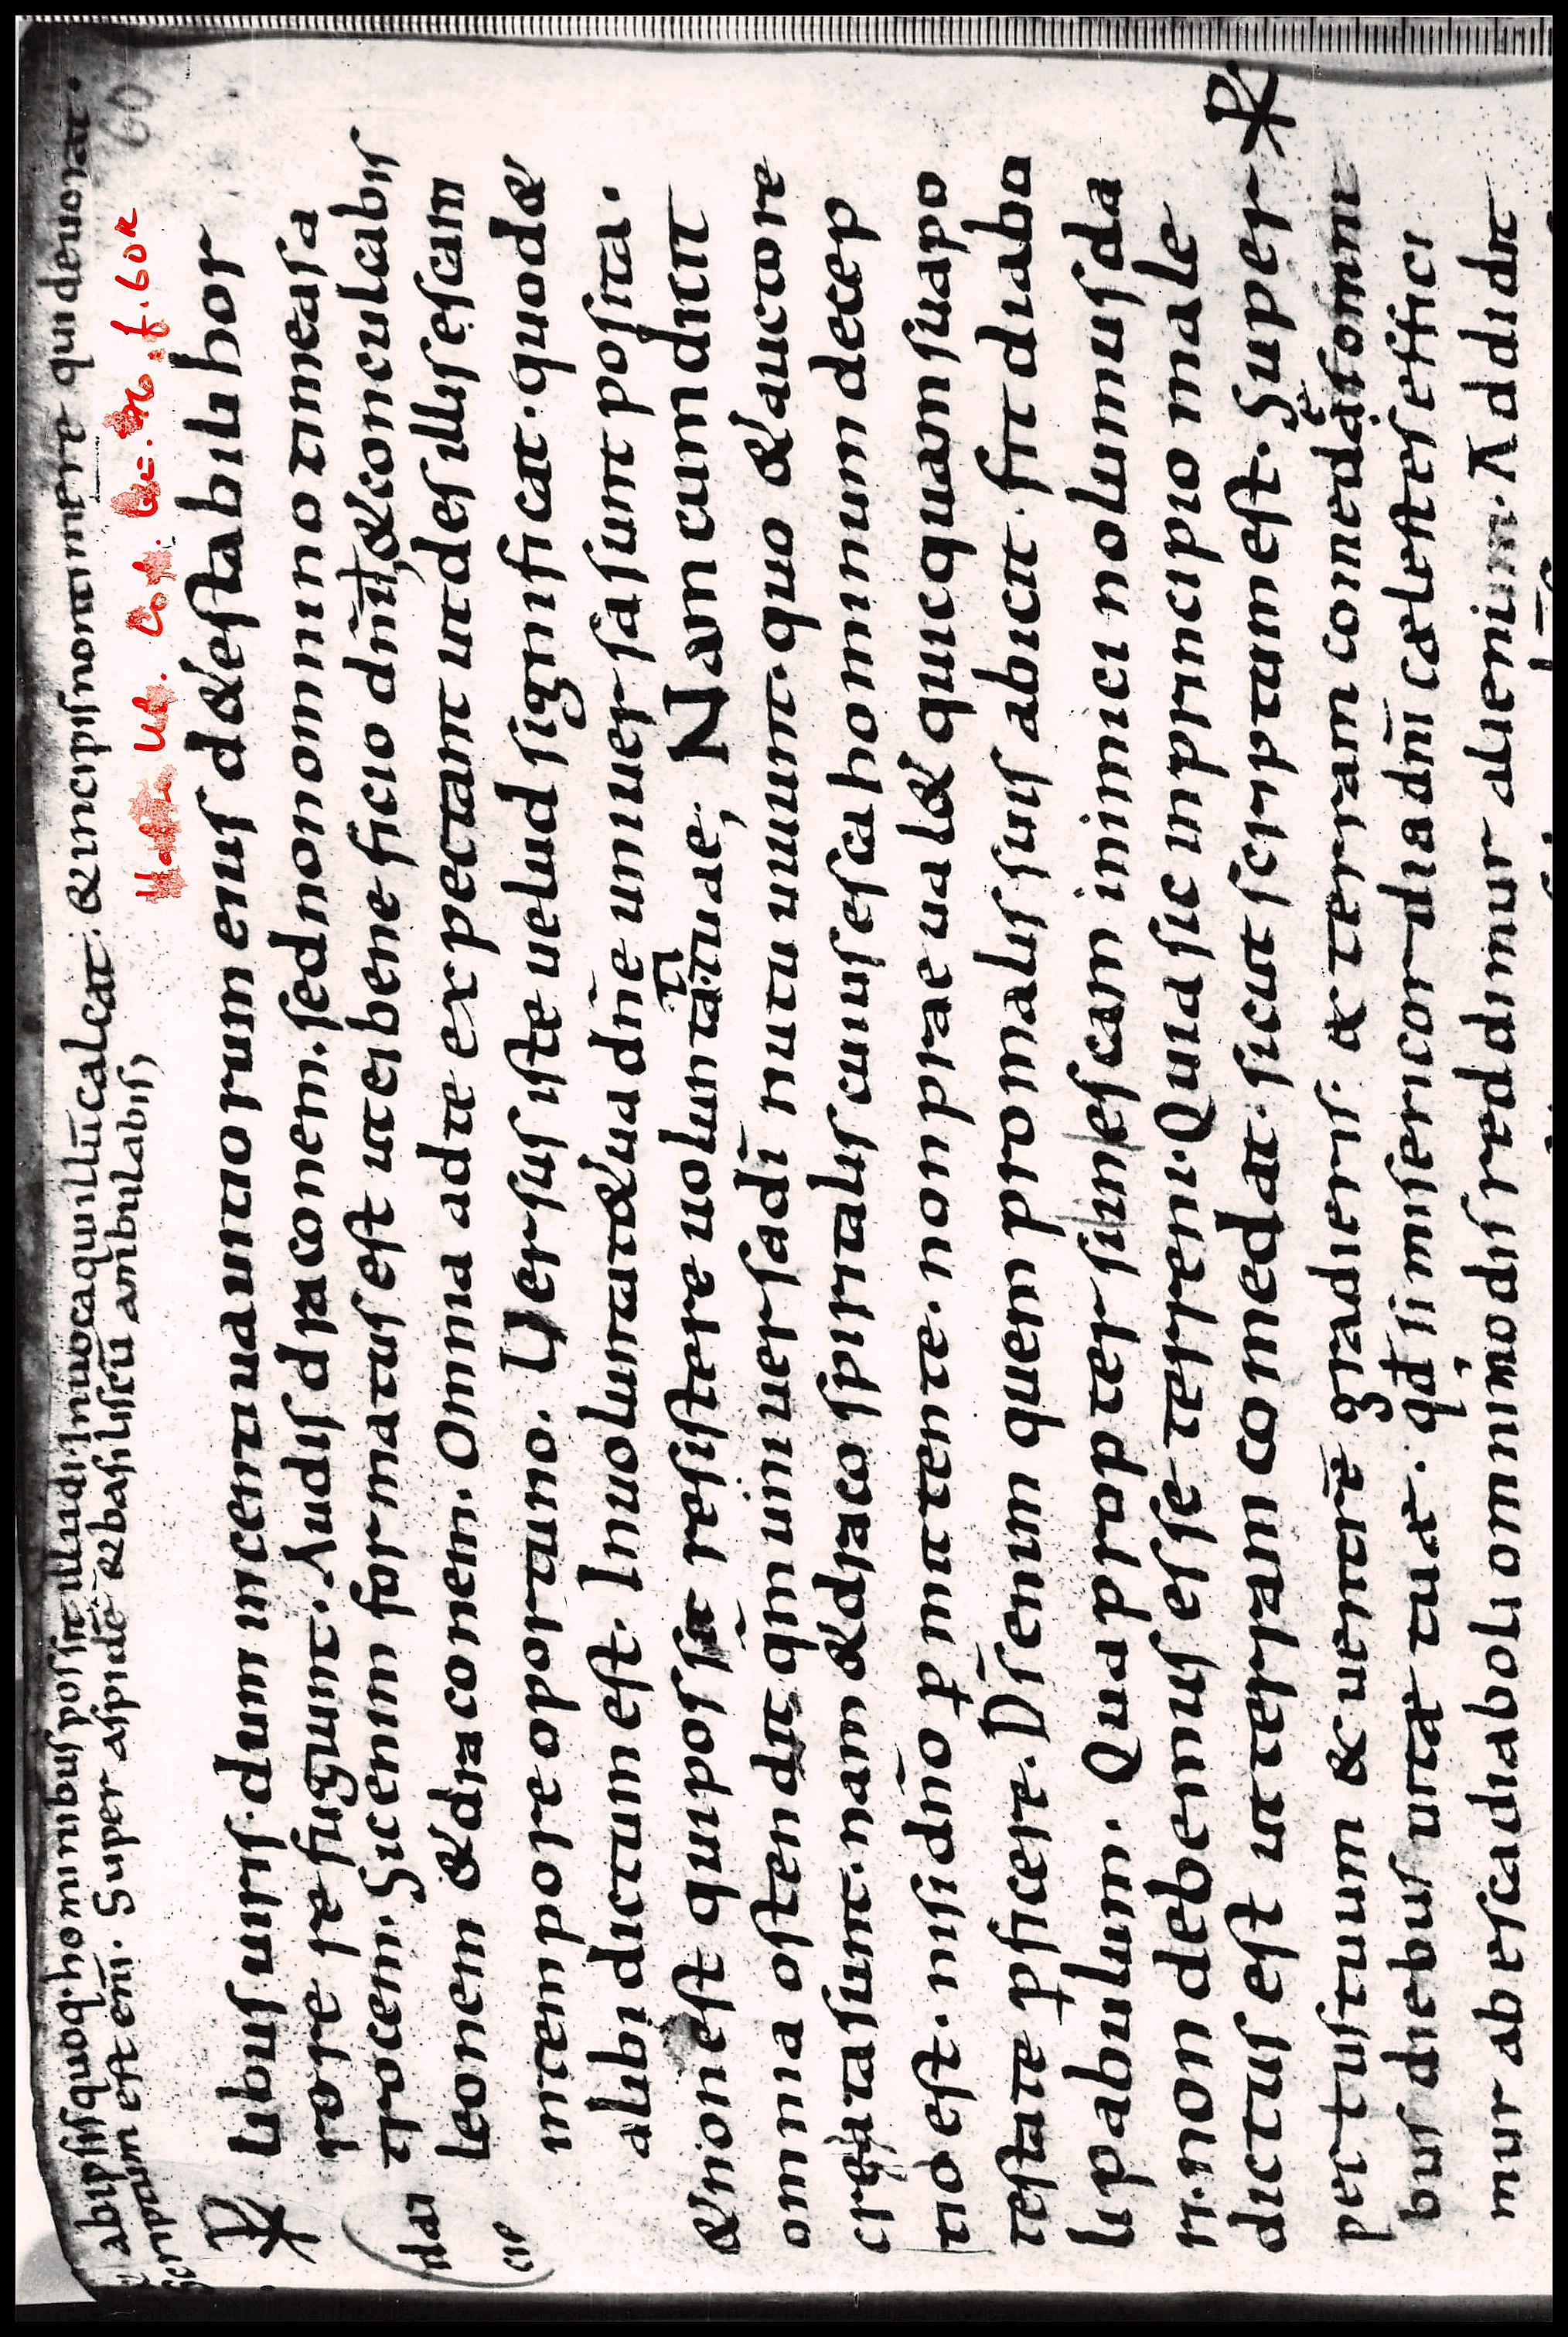 ab ipsis quoq; hominibus possit illudi. Inuoca qui illū calcat. & incipis non timere qui deuorat.
Scriptum est eni. Super aspidē & basiliscū ambulabis,
60
f. 60r
libus uiris. dum incentiua uitiorum enus d&estabili hor
rore refugiunt. Audis draconem. sed non omnino timeas a
trocem. Sic enim formatus est ut ei beneficio dnī t, & conculcabis
leonem & draconem. Omnia ad te expectant ut des illis escam
in tempore oportuno. Versus iste uelud significat. quod &
alibi dictum est. In uoluntat& ua dnē uniuersa sunt posita.
& non est qui possit resistere uoluntati tuae; Nam cum dicit
omnia ostendit qm̄ uniuersa dī nutu uiuunt. quo & auctore
creata sunt. nam & draco spiritalis cuius esca hominum decep
tio est. nisi dnō pmittente. non praeual& quicquam sua po
testate pficere. Dīs enim quem pro malis suis abicit. fit diabo
li pabulum. Qua propter si in escam inimici nolumus da
ri. non debemus esse terreni. Quia sic in principio male
dictus est ut terram comedat. sicut scriptum est. Super
pectus tuum & uentrē gradieris. & terram comedas omni
bus diebus uitæ tuæ. qd si misericordia dnī cælestes effici
mur ab esca diaboli omnimodis reddimur alieni. Addidit